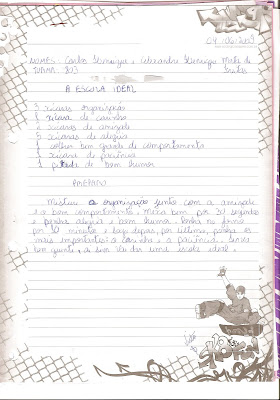 04/06/2009
NOMES: Carlos Henrique e Alexandre Henrique Mota de
TURMA: 803
A ESCOLA IDEAL
3 xícaras organização
1 xícara de carinho
2 xícaras de amizade
5 xícaras de alegria
1 colher bem grande de comportamento
1 xícara de paciência
1 pitada de bom humor
PREPARO
Misture a organização junto com a amizade
e o bom comportamento. Mexa bem por 30 segundos
e depois alegria e bom humor. Ponha no forno
por 30 minutos e logo depois, por último, ponha os
mais importantes: o carinho e a paciência. Sirva
bem quente, e sirva-se de uma escola ideal.